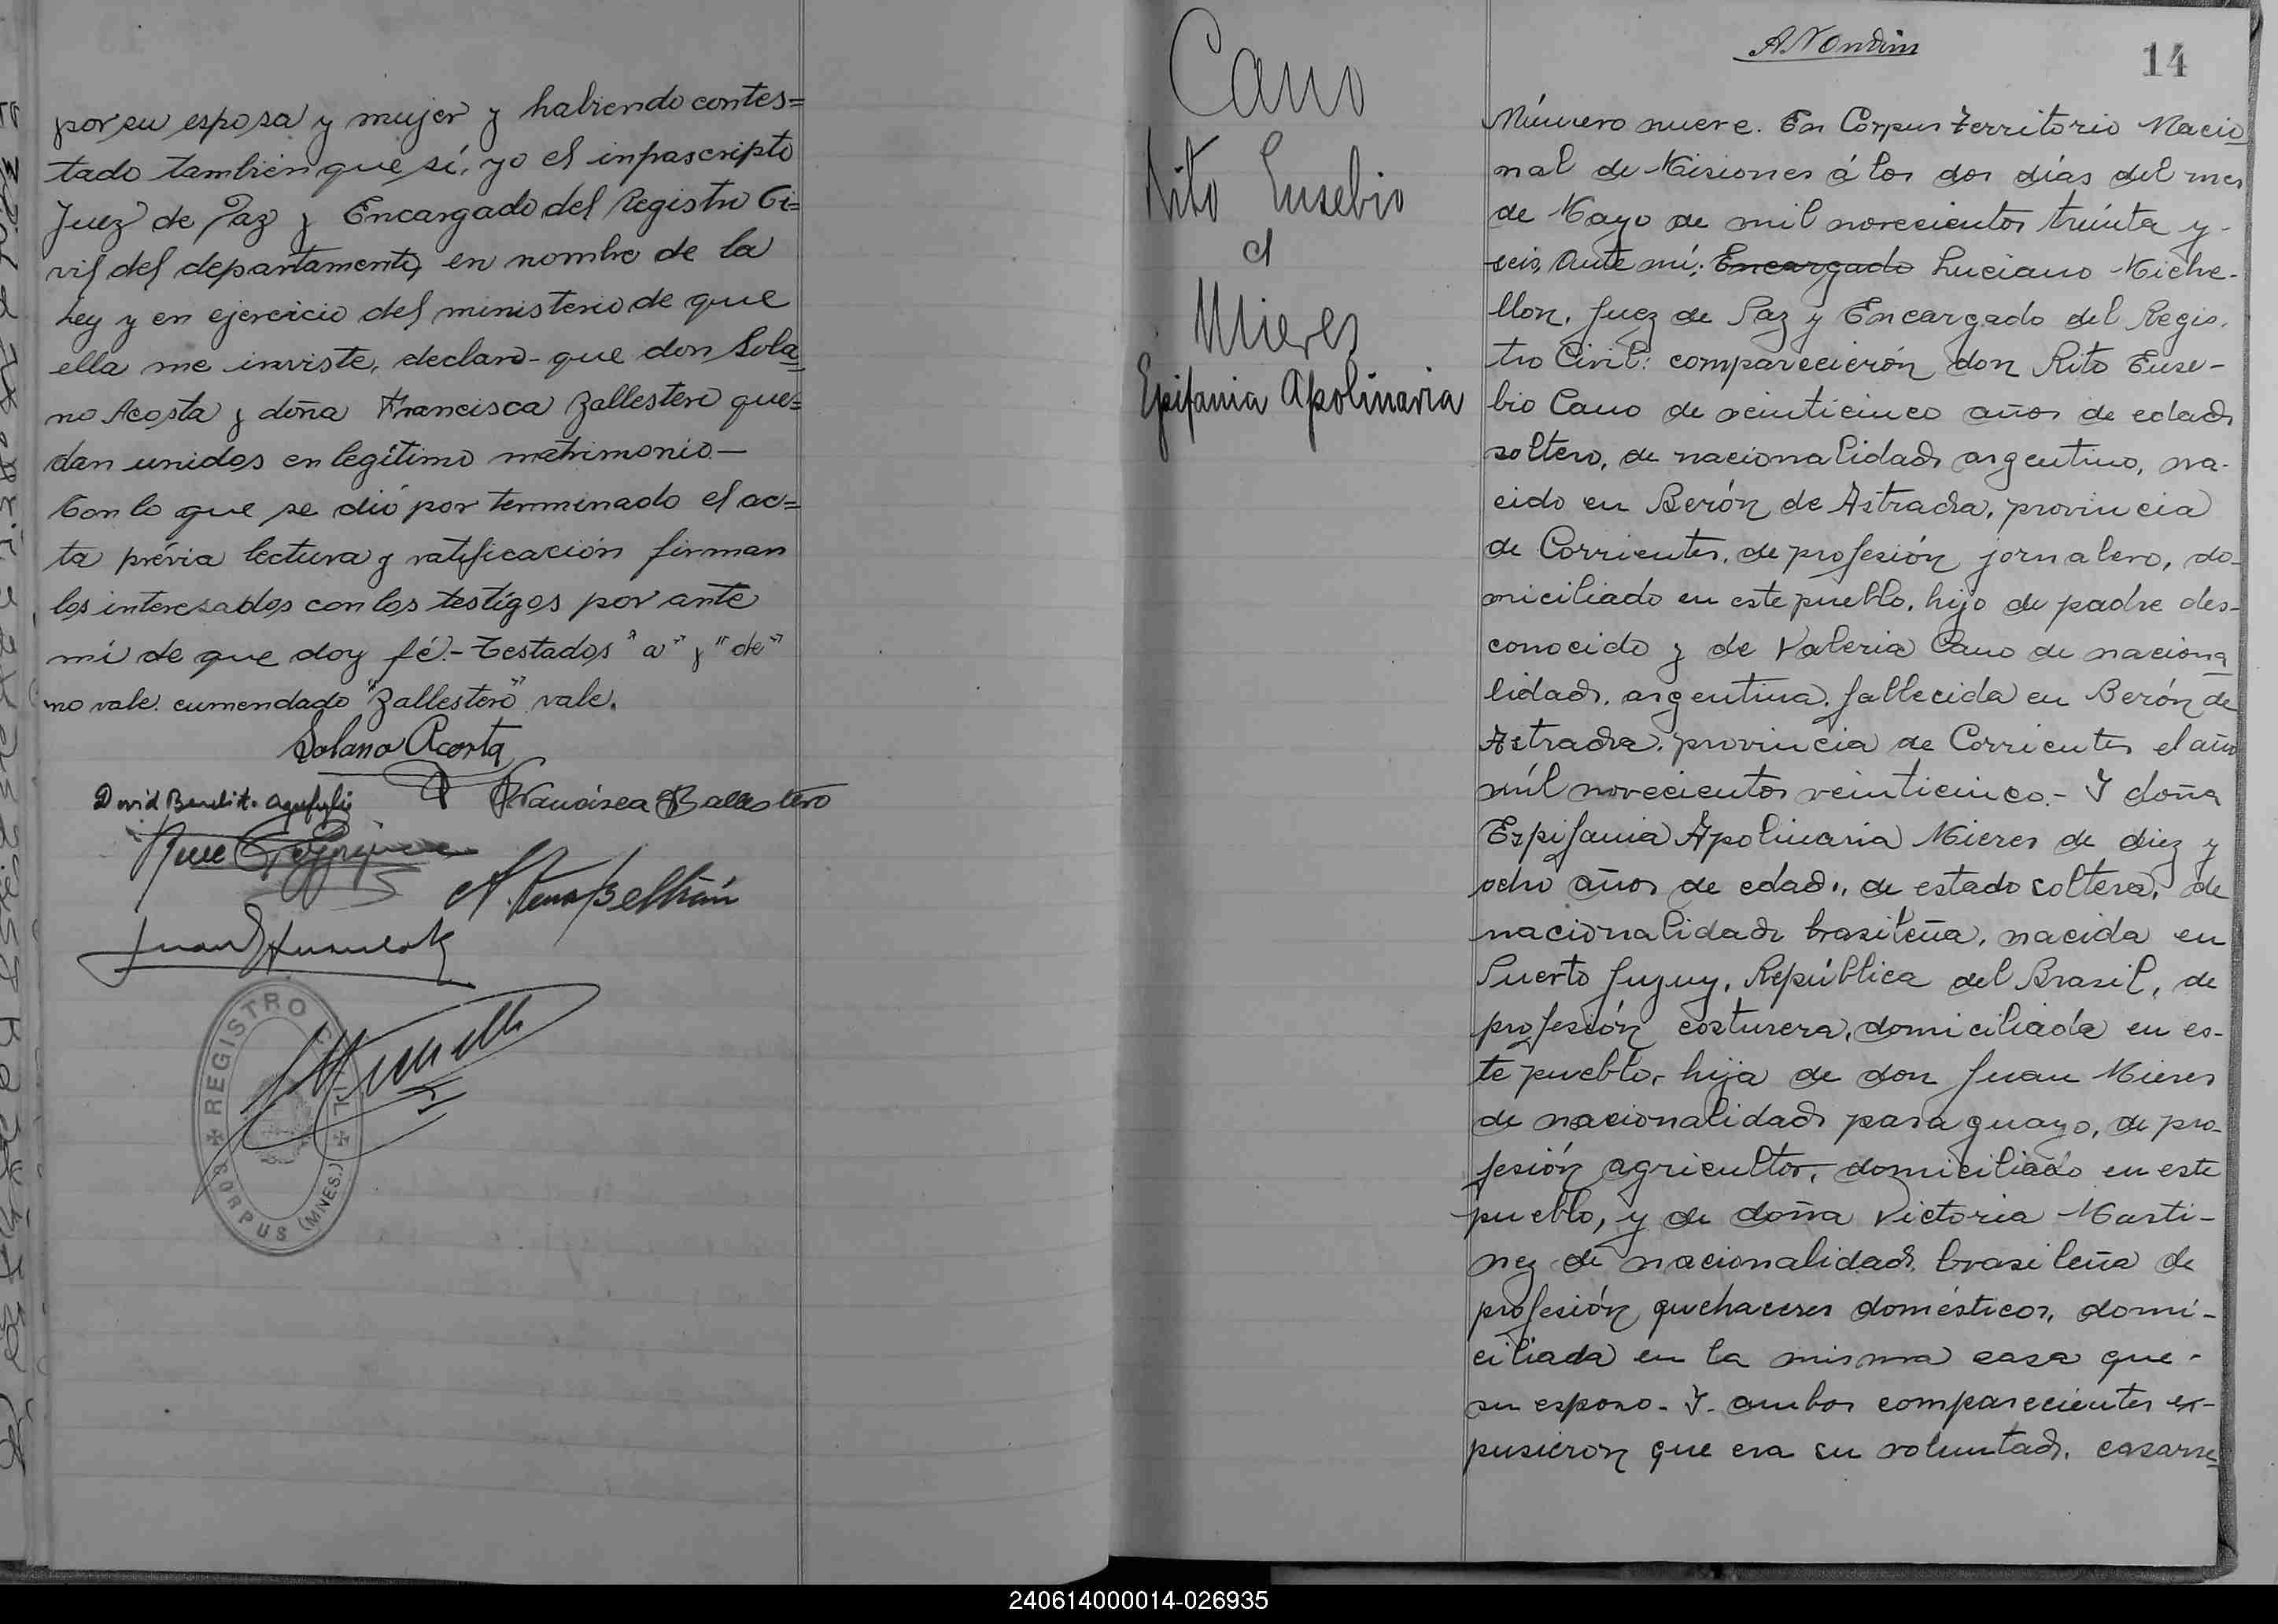 por su esposa y mujer y habiendo contes=
tado también que sí, yo el infrascripto
Juez de Paz y Encargado del Registro Ci=
vil del departamento, en nombre de la
Ley y en ejercicio del ministerio de que
ella me inviste, declaro - que don Sola=
no Acosta y doña Francisca Zallestero que=
dan unidos en legítimo matrimonio.—
Con lo que se dió por terminado el ac=
ta prévia lectura y ratificación firman
los interesados con los testigos por ante
mí de que doy fé.- Testados "a" y "de"
no vale. enmendado "Zallestero" vale.
Solano Acosta
Francisca Ballestero
David
Beltrán
Juan
REGISTRO CIVIL
CORPUS (MNES.)
Cano
Rito Eusebio
c/
Mieres
Epifania Apolinaria
14
Número nueve. En Corpus Territorio Nacio
nal de Misiones á los dos días del mes
de Mayo de mil novecientos treinta y-
seis, ante mí: Encargado Luciano Miche-
llon, Juez de Paz y Encargado del Regis-
tro Civil: comparecierón don Rito Euse-
bio Cano de veinticinco años de edad,
soltero, de nacionalidad argentino, na-
cido en Berón de Astrada, provincia
de Corrientes, de profesión jornalero, do-
miciliado en este pueblo, hijo de padre des-
conocido y de Valeria Cano de naciona
lidad, argentina, fallecida en Berón de
Astrada, provincia de Corrientes el año
míl novecientos veinticinco.- Y doña
Espifania Apolinaria Mieres de diez y
ocho años de edad, de estado soltera, de
nacionalidad brasileña, nacida en
Puerto Jujuy, República del Brasil, de
profesión costurera, domiciliada en es-
te pueblo, hija de don Juan Mieres
de nacionalidad paraguayo, de pro-
fesión agricultor, domiciliado en este
pueblo, y de doña Victoria Marti-
nez de nacionalidad, brasileña de
profesión quehaceres domésticos, domi-
ciliada en la misma casa que-
su esposo.- Y- ambos comparecientes ex-
pusieron que era su voluntad, casarse
240614000014-026935